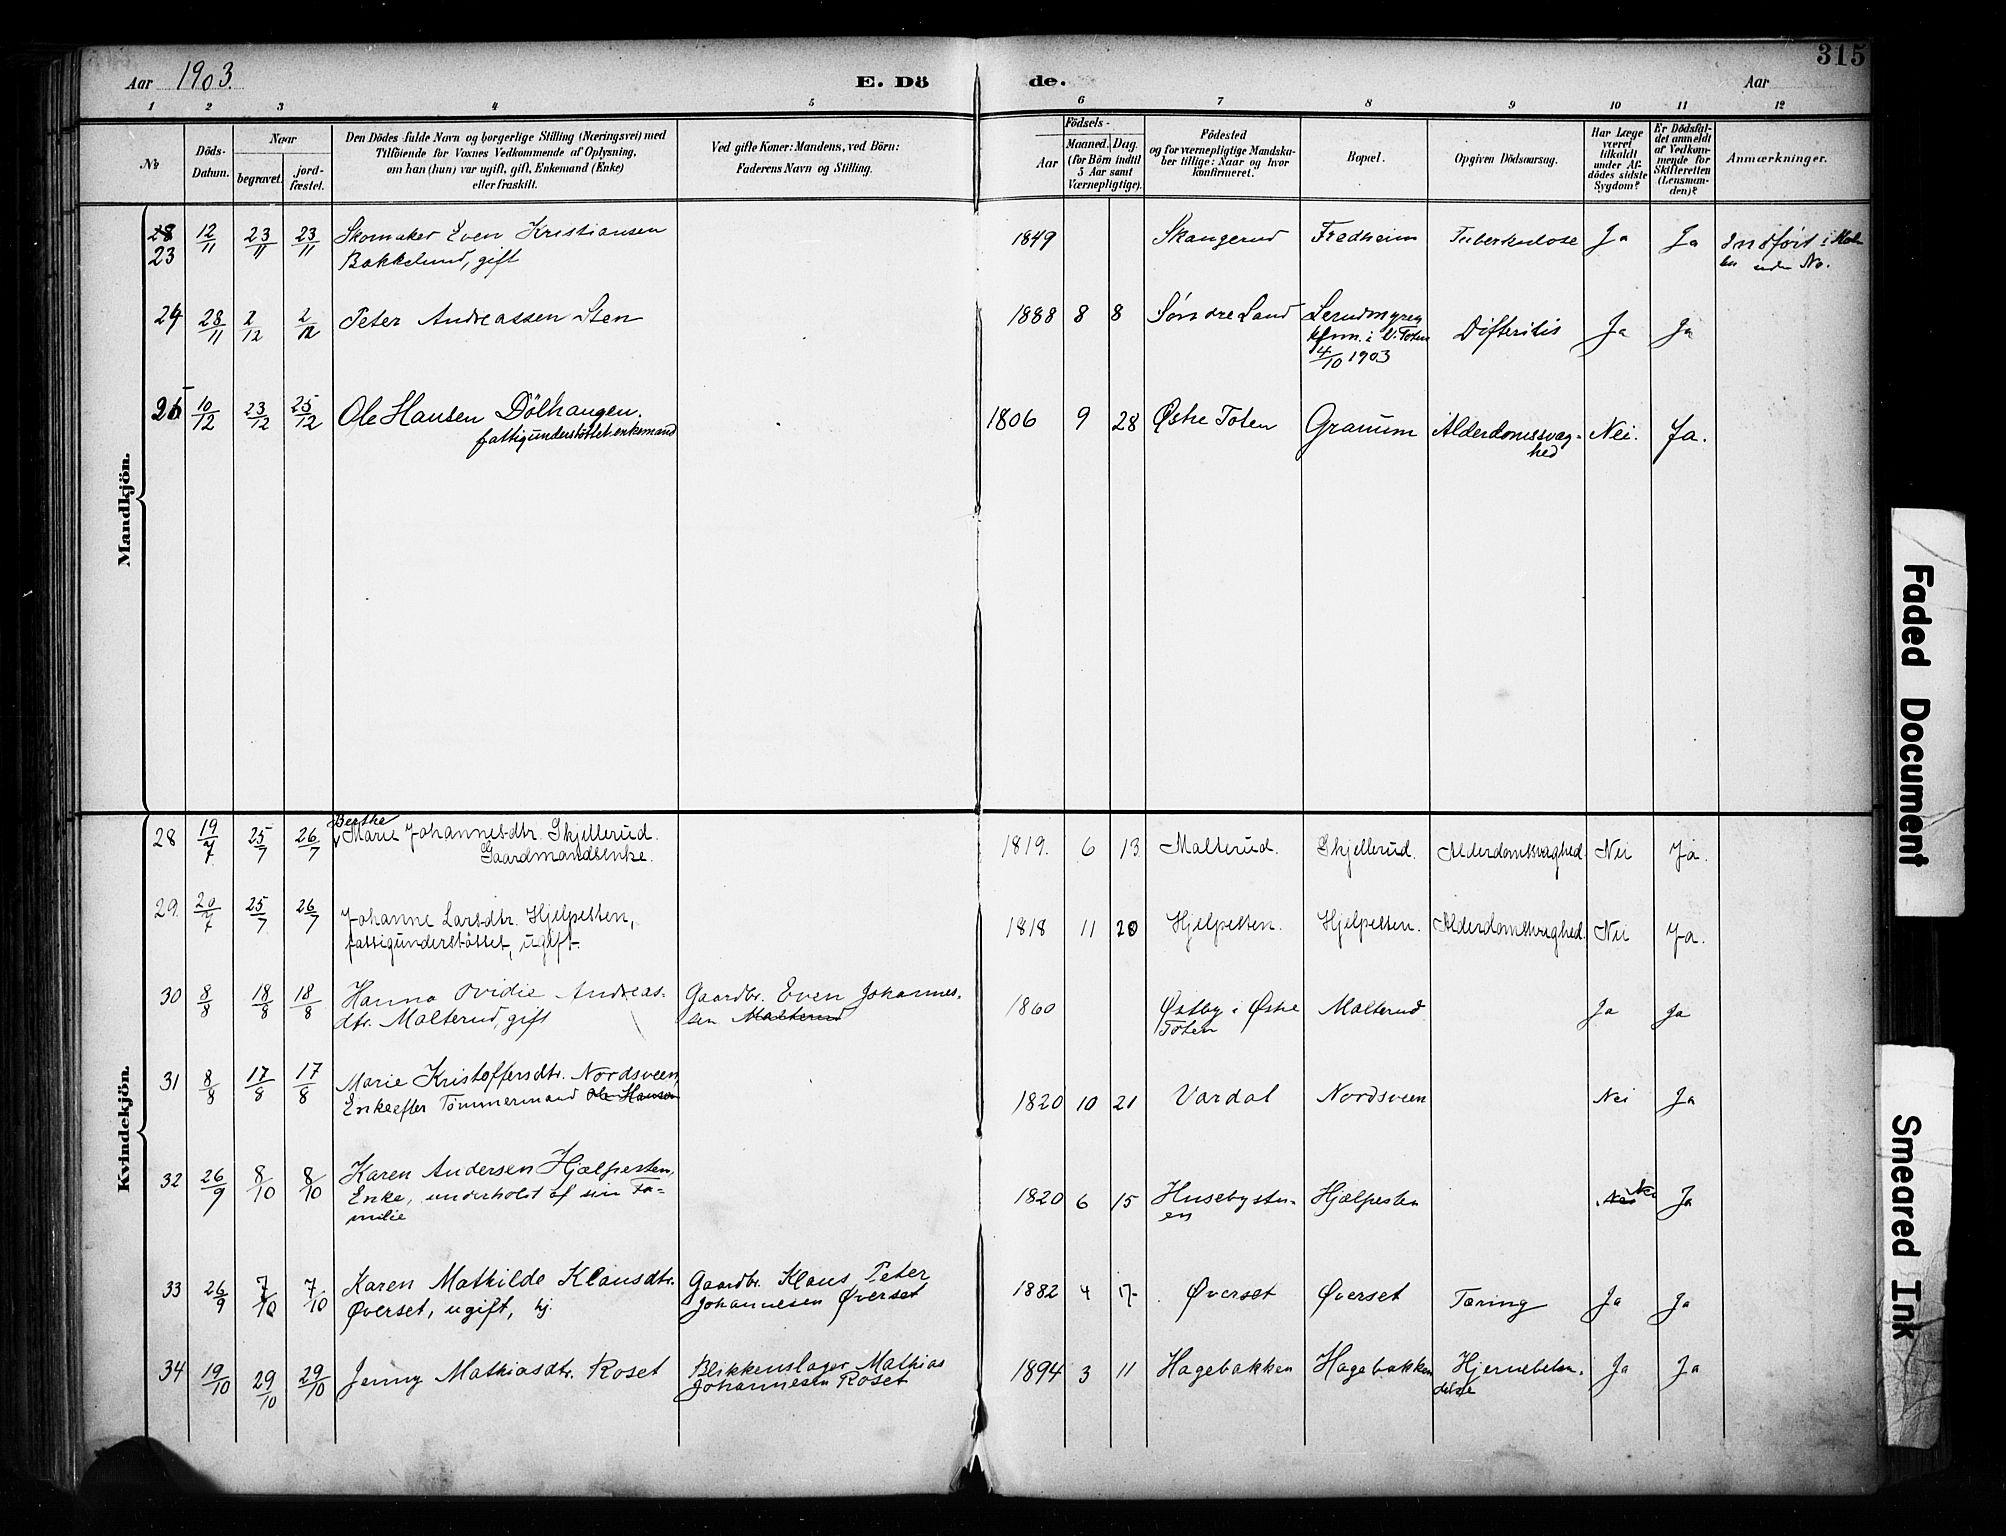 315
Aar 1903.
E. Dö de.
Aar
1 2 3 4 5 6 7 8 9 10 11 12
No
Döds-
Datum.
Naar
begravet.
jord-
fæstet.
Den Dödes fulde Navn og borgerlige Stilling (Næringsvei) med
Tilföiende for Voxnes Vedkommende af Oplysning,
om han (hun) var ugift, gift, Enkemand (Enke)
eller fraskilt.
Ved gifte Koner: Mandens, ved Börn:
Faderens Navn og Stilling.
Födsels-
Aar
Maaned, Dag.
(for Börn indtil
5 Aar samt
Værnepligtige).
Födested
og for værnepligtige Mandska-
ber tillige: Naar og hvor
konfirmeret.
Bopæl.
Opgiven Dödsaarsag.
Har Læge
været
tilkaldt
under Af-
dödes sidste
Sygdom?
Er Dödsfal-
det anmeldt
af Vedkom-
mende for
Skifteretten
(Lensman-
den)?
Anmærkninger.
Mandkjön.
28 12/11 23/11 23/11 Skomaker Even Kristiansen 1849 Skangerud Fredheim Tuberkulose Ja Ja Indført i
23 Bakkelund, gift under No.
24 28/11 2/12 2/12 Peter Andreassen Sten 1888 8 8 Søndre Land Lerudmyren Difteritis Ja Ja
i V. Toten
4/10 1903
25 10/12 23/12 25/12 Ole Hansen Dölhaugen. 1806 9 28 Østre Toten Granum Alderdomssvag- Nei. Ja.
fattigunderstöttet enkemand hed
Kvindekjön.
Berthe
28 19/7 25/7 26/7 Marie Johannesdtr. Skjellerud. 1819. 6 13 Malterud. Skjellerud. Alderdomssvaghed. Nei Ja.
Gaardmandsenke.
29. 20/7 25/7 26/7 Johanne Larsdtr. Hjelpesten, 1818 11 20 Hjelpesten. Hjelpesten. Alderdomssvaghed. Nei Ja.
fattigunderstöttet, ugift.
30 8/8 18/8 18/8 Hanna Ovidie Andreas- Gaardbr. Even Johannes- 1860 Østby i Østre Malterud Ja Ja
dtr. Malterud, gift sen Malterud Toten
31 8/8 17/8 17/8 Marie Kristoffersdtr. Nordsveen, 1820 10 21 Vardal Nordsveen Nei Ja
Enke efter Tømmermand Ole Hansen
32 26/9 8/10 8/10 Karen Andersen Hjælpesten, 1820 6 15 Husebystu- Hjælpesten Nei Nei Ja
Enke, underholdt af sin Fa- en
milie
33 26/9 7/10 7/10 Karen Mathilde Klausdtr. Gaardbr. Klaus Peter 1882 4 17 Øverset Øverset Tæring Ja Ja
Øverset, ugift, hj. Johannesen Øverset
34 19/10 29/10 29/10 Jenny Mathiasdtr. Roset Blikkenslager Mathias 1894 3 11 Hagebakken Hagebakken Hjernebetæn- Ja Ja
Johannesen Roset delse
Faded Document
Smeared Ink